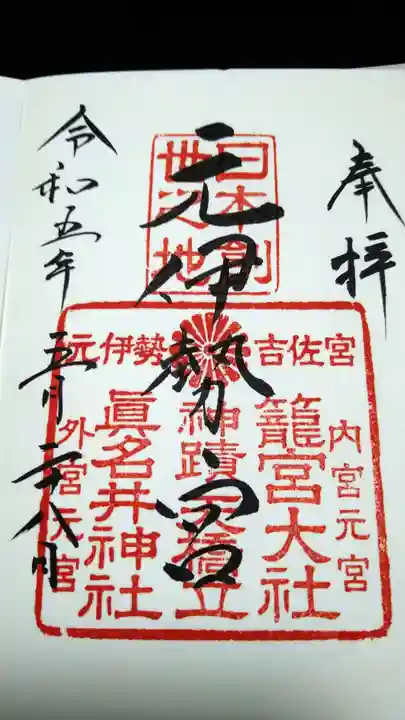 奉拝
日本創
世之地
元伊勢宮
吉佐宮
元伊勢
内宮元宮
籠宮大社
神蹟天橋立
眞名井神社
外宮元宮
令和五年五月二十八日